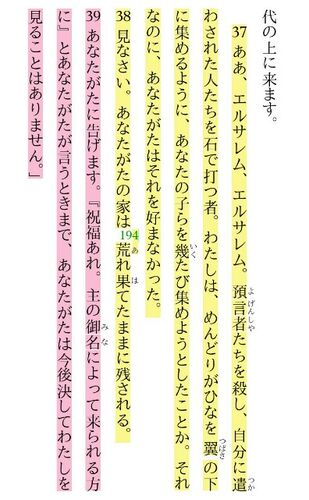 代の上に来ます。
37 ああ、エルサレム、エルサレム。預言者たちを殺し、自分に遣
わされた人たちを石で打つ者。わたしは、めんどりがひなを翼の下
に集めるように、あなたの子らを幾たび集めようとしたことか。それ
なのに、あなたがたはそれを好まなかった。
38 見なさい。あなたがたの家は194荒れ果てたままに残される。
39 あなたがたに告げます。『祝福あれ。主の御名によって来られる方
に』とあなたがたが言うときまで、あなたがたは今後決してわたしを
見ることはありません。」